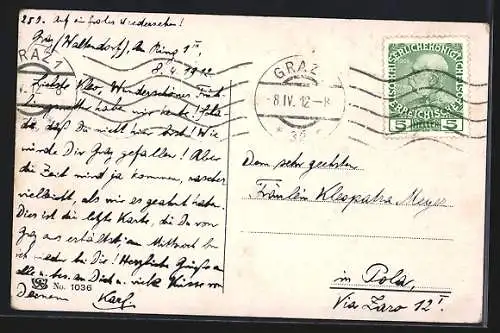 259. Auf ein frohes Wiedersehen!
Graz (Waltendorf), Am Ring 1ᴵᴵ.
8.4.1912
Liebste Kleo, Wunderschönes Früh-
lingswetter habe wir heute! Scha-
de, daß Du nicht hier bist! Wie
würde Dir Graz gefallen! Aber
die Zeit wird ja kommen, rascher
vielleicht, als wir es geahnt haben.
Dies ist die letzte Karte, die Du von
Graz aus erhältst; am Mittwoch bin
ich wieder bei Dir! Herzliche Grüße an
alle u. bes. an Dich u. viele Küsse von
Deinem Karl
No. 1036
GRAZ 1
GRAZ
-8.IV.12-8
KAISERLICHE KÖNIGL
ÖSTERREICHISCHE
5 HELLER 5
Dem sehr geehrten
Fräulein Kleopatra Meyer
in Pola,
Via Zaro 12ᴵ.